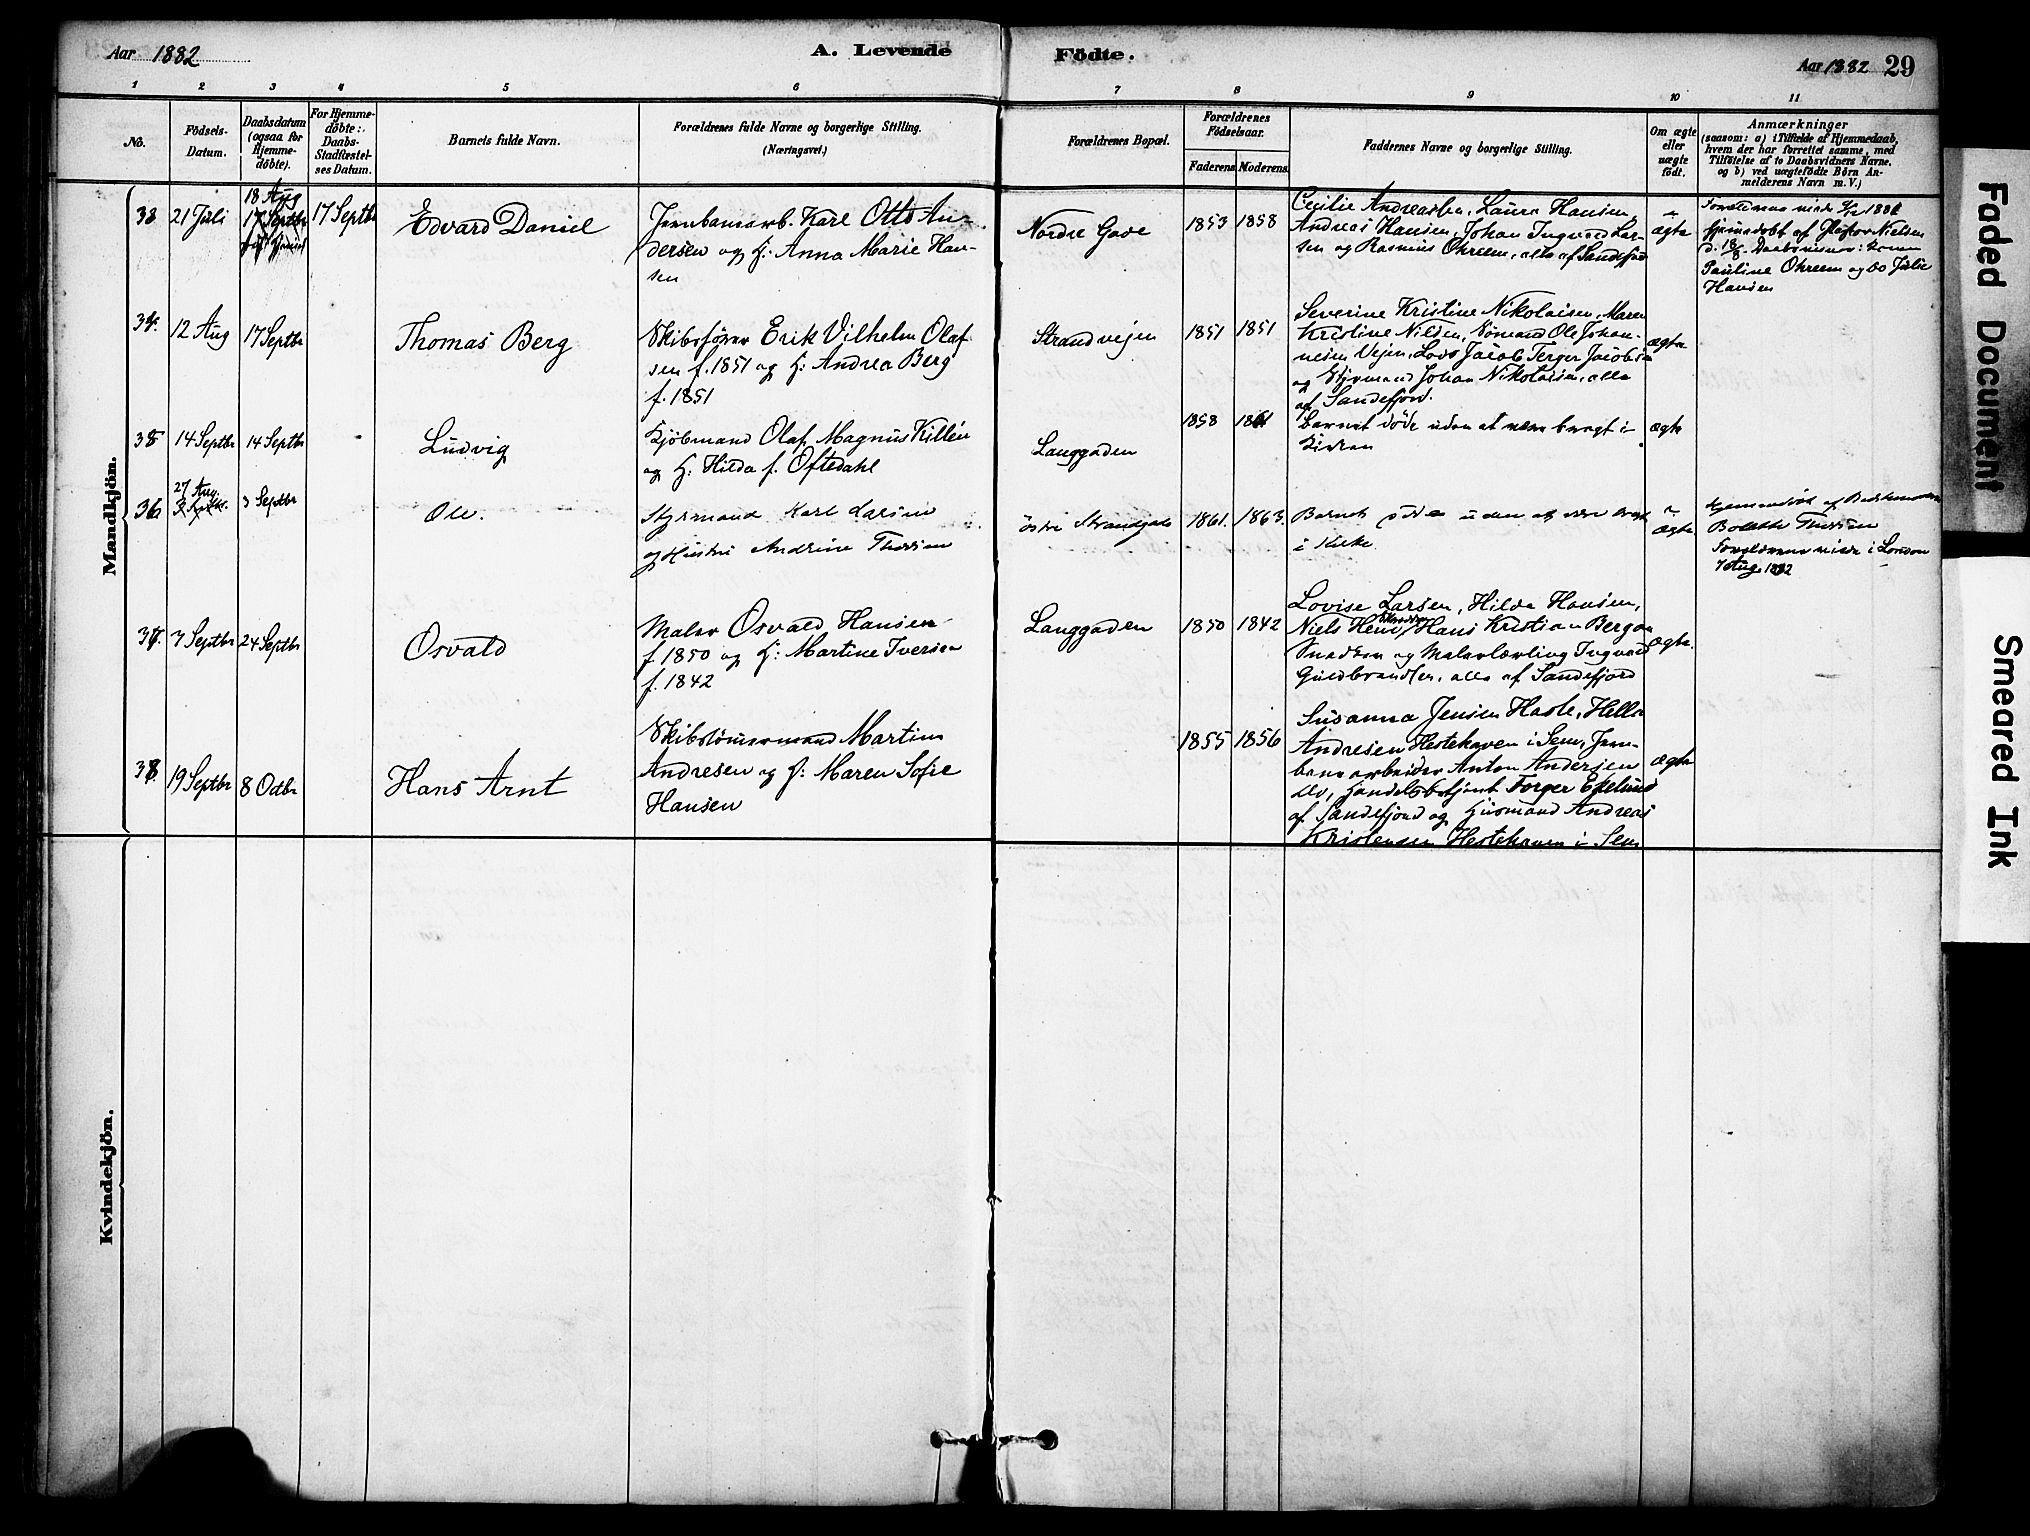 Aar 1882
A. Levende
Födte.
Aar 1882 29
1 2 3 4 5 6 7 8 9 10 11
No.
Födsels-
Datum.
Daabsdatum
(ogsaa for
Hjemme-
döbte).
For Hjemme-
döbte:
Daabs-
Stadfæstel-
ses Datum.
Barnets fulde Navn.
Forældrenes fulde Navne og borgerlige Stilling.
(Næringsvei.)
Forældrenes Bopæl.
Forældrenes
Födselsaar.
Faderens Moderens
Faddernes Navne og borgerlige Stilling.
Om ægte
eller
uægte
födt.
Anmærkninger
(saasom: a) i Tilfælde af Hjemmedaab,
hvem der har forrettet samme, med
Tilföielse af to Daabsvidners Navne.
og b) ved uægtefödte Börn An-
melderens Navn m. V.)
Mandkjön.
33
21 Juli
18 Aug
17 Septbr
17 Septbr
Edvard Daniel
Jernbanearb. Karl Otto An-
dersen og H: Anna Marie Han-
sen
Nordre Gade
1853 1858
Cecilie Andreasen, Laura Hansen,
Andreas Hansen, Johan Ingvald Lar-
sen og Rasmus Ohreen, alle af Sandefjord
ægte
Forældrene viede 1882
hjemmedøbt af Pastor Nielsen
d. 18/8. Daabsvidner: Kone
Pauline Ohreen og do Julie
Hansen
34.
12 Aug
17 Septbr
Thomas Berg
Skibsfører Erik Vilhelm Olaf-
sen f. 1851 og H: Andrea Berg
f. 1851
Strandvejen
1851 1851
Severine Kristine Nikolaisen, Maren
Kristine Nilsen, Sømand Ole Johan-
nesen Vejen, Lods Jacob Terger Jacobsen
og Styrmand Johan Nikolaisen, alle
af Sandefjord.
ægte
35
14 Septbr
14 Septbr
Ludvig
Kjøbmand Olaf Magnus Killén
og H: Hilda f. Oftedahl
Langgaden
1858 1861
Barnet døde uden at være bragt i
Kirken
ægte
36
27 Aug.
3 Septbr
Ole.
Styrmand Karl Larsen
og Hustru Andrine Thorsen
østre Strandgade
1861. 1863.
Barnet døde uden at være bragt
i Kirke
ægte
Hjemmedøbt af
Bolette Thorsen
Forældrene viede i London
7 Aug. 1882
37.
3 Septbr
24 Septbr
Osvald
Maler Osvald Hansen
f 1850 og H: Martine Iversen
f. 1842
Langgaden
1850 1842
Lovise Larsen, Hilda Hansen,
Niels Hem, Hans Kristian Bergan
Snedker og Malerlærling Ingvald
Guldbrandsen, alle af Sandefjord
ægte.
38
19 Septbr
8 Octbr
Hans Arnt
Skibstømermand Martin
Andresen og H: Maren Sofie
Hansen
1855 1856
Susanna Jensen Hasle, Hella
Andresen Hestehaven i Sem, Jern-
banearbeider Anton Andersen
Handelsbetjent Torger Ekelund
af Sandefjord og Husmand Andreas
Kristensen Hestehaven i Sem
ægte
Kvindekjön.
Faded Document
Smeared Ink